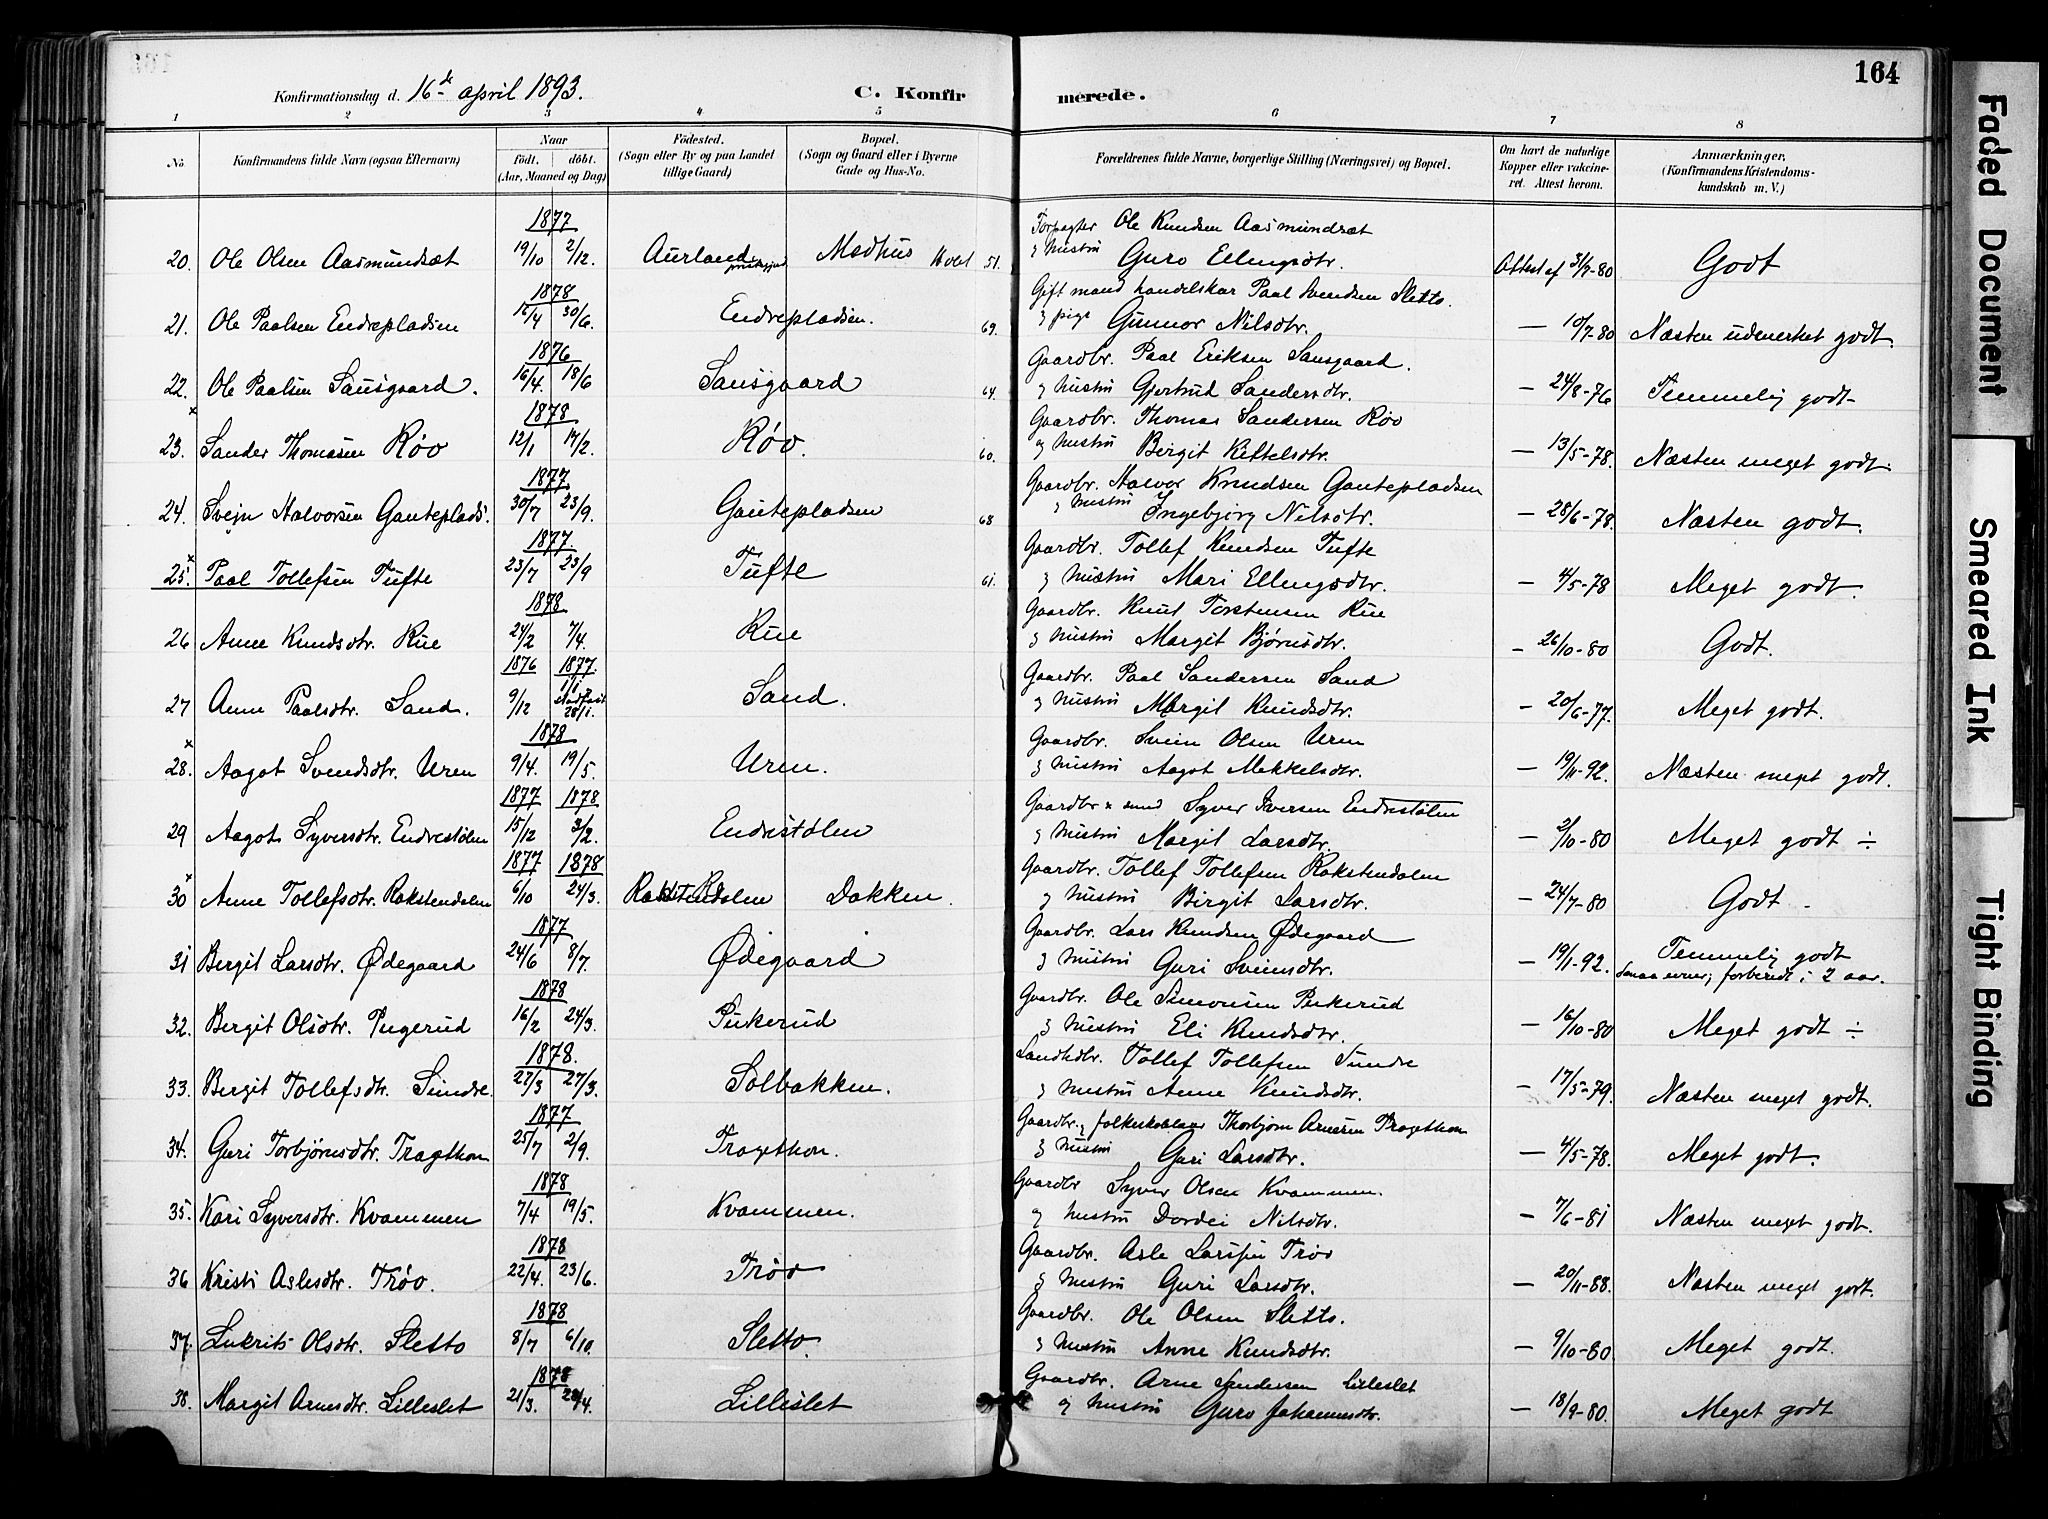 164
Konfirmationsdag d. 16de april 1893.
C. Konfirmerede.
1 2 3 4 5 6 7 8
No. Konfirmandens fulde Navn (ogsaa Efternavn) Naar født. døbt. (Aar, Maaned og Dag) Fødested. (Sogn eller By og paa Landet tillige Gaard) Bopæl. (Sogn og Gaard eller i Byerne Gade og Hus-No. Forældrenes fulde Navne, borgerlige Stilling (Næringsvei) og Bopæl. Om havt de naturlige Kopper eller vakcineret. Attest herom. Anmærkninger. (Konfirmandens Kristendomskundskab m. V.)
1877 Ole Knudsen Aasmundsæt
20. Ole Olsen Aasmundsæt 19/10 2/12. Aurland Medhus Hol 51. & Hustru Guro Ellingsdtr. Attest af 31/7-80 Godt
1878 Gift mand handelskar Paal Svendsen Sletto.
21. Ole Paalsen Endrepladsen 15/4 30/6. Endrepladsen. 69. & pige Gunnor Nilsdtr. — 10/7-80 Næsten udmerket godt.
1876 Gaardbr. Paal Eriksen Sausgaard.
22. Ole Paalsen Sausgaard. 16/4. 18/6 Sausgaard 64. & Hustru Gjertrud Sandersdtr. — 24/8-76 Temmelig godt
1878 Gaardbr. Thomas Sandersen Røv
x 23. Sander Thomasen Røv 12/1 17/2. Røv. 60. og Hustru Birgit Kittelsdtr. — 13/5-78. Næsten meget godt.
1877. Gaardbr. Halvor Knudsen Gautepladsen
24. Svejn Halvorsen Gauteplads. 30/7 23/9. Gautepladsen 68 & Hustru Ingebjørg Nilsdtr. — 28/6-78. Næsten godt.
1877. Gaardbr. Tollef Knudsen Tufte
x 25. Paal Tollefsen Tufte 23/7 23/9 Tufte 61. & Hustru Mari Ellingsdtr. — 4/5-78 Meget godt.
1878 Gaardbr. Knut Torstensen Rue
26 Anne Knudsdtr. Rue 24/2 7/4. Rue & Hustru Margit Bjørnsdtr. — 26/10-80 Godt.
1876 1877. Gaardbr. Paal Sandersen Sand
27 Anne Paalsdtr. Sand. 9/12 1/1 stadfæst 28/1. Sand. & Hustru Margit Knudsdtr. — 20/6-77. Meget godt.
1878 Gaardbr. Svein Olsen Uren
x 28. Aagot Svendsdtr. Uren 9/4. 19/5. Uren. & Hustru Aagot Mekkelsdtr. — 19/11-92. Næsten meget godt.
1877 1878 Gaardbr & smed Syver Iversen Endrestølen
29 Aagot Syversdtr. Endrestølen 15/12 3/2. Endrestølen & Hustru Margit Larsdtr. — 2/10-80 Meget godt ÷
1877 1878 Gaardbr. Tollef Tollefsen Rakstendalen
x 30 Anne Tollefsdtr. Rakstendalen 6/10 24/3. Rakstendalen Dokken. og Hustru Birgit Larsdtr. — 24/7-80 Godt
1877 Gaardbr. Lars Knudsen Ødegaard
31 Birgit Larsdtr. Ødegaard 24/6 8/7. Ødegaard & Hustru Guri Sveinsdtr. — 19/11-92. Temmelig godt
Smaa evner; forberedt i 2 aar.
1878 Gaardbr. Ole Simonsen Pukerud
32. Birgit Olsdtr. Pugerud 16/2 24/3. Pukerud & Hustru Eli Knudsdtr. — 16/10-80 Meget godt ÷
1878. Landhdbr. Tollef Tollefsen Sundre
33. Birgit Tollefsdtr. Sundre. 22/3 27/3. Solbakken. & Hustru Anne Knudsdtr. — 17/5-79. Næsten meget godt.
1877 Gaardbr. & folkeskolelærer Thorbjørn Arnesen Tragethon
34. Guri Torbjørnsdtr. Tragethon 25/7 2/9. Tragethon. & Hustru Guri Larsdtr. — 4/5-78. Meget godt.
1878 Gaardbr Syver Olsen Kvammen.
35. Kari Syversdtr. Kvammen 7/4 19/5. Kvammen. og Hustru Dordei Nilsdtr. — 7/6-81 Næsten meget godt.
1878 Gaardbr. Asle Larssen Trøo
36 Kristi Aslesdtr. Trøo. 22/4. 23/6. Trøo & Hustru Guri Larsdtr. — 20/11-88. Næsten meget godt.
1878 Gaardbr. Ole Olsen Sletto.
37. Lukrits Olsdtr. Sletto 8/7 6/10. Sletto. & Hustru Anne Knudsdtr. — 9/10-80. Meget godt.
1878 Gaardbr. Arne Sandersen Lilleslet
38. Margit Arnesdtr. Lilleslet 21/3. 28/4. Lilleslet og Hustru Guro Johannesdtr. — 18/9-80. Meget godt
Faded Document
Smeared Ink
Tight Binding